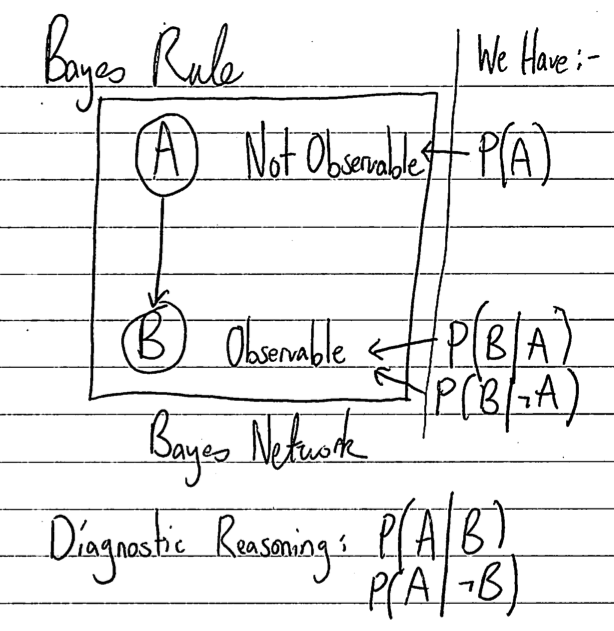 Bayes Rule
We Have:-
A Not Observable P(A)
B Observable P(B|A)
P(B|¬A)
Bayes Network
Diagnostic Reasoning: P(A|B)
P(A|¬B)